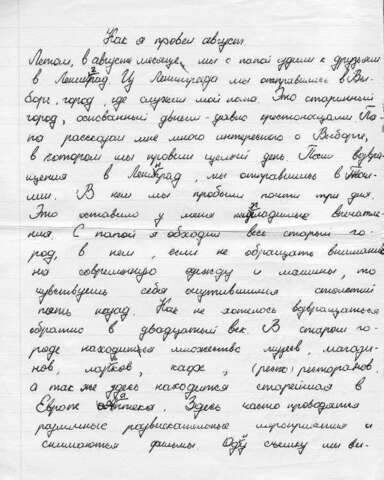 Как я провел август.
Летом, в августе месяце, мы с папой ездили к друзьям
в Ленинград. Из Ленинграда мы отправились в Вы-
борг, город, где служил мой папа. Это старинный
город, основанный давным-давно крестоносцами. Па-
па рассказал мне много интересного о Выборге,
в котором мы провели целый день. После возвра-
щения в Ленинград, мы отправились в Тал-
лин. В нем мы пробыли почти три дня.
Это оставило у меня неизгладимые впечатле-
ния. С папой я обходил весь старый го-
род, в нем, если не обращать внимание
на современную одежду и машины, то
чувствуешь себя очутившимся столетий
пять назад. Как не хотелось возвращаться
обратно в двадцатый век. В старом го-
роде находится множество музеев, магази-
нов, лавков, кафе, (ресто) ресторанов.
а так же здесь находится старейшая в
Европе аптека. Здесь часто проводятся
различные развлекательные мероприятия и
снимаются фильмы. Одну съемку мы ви-